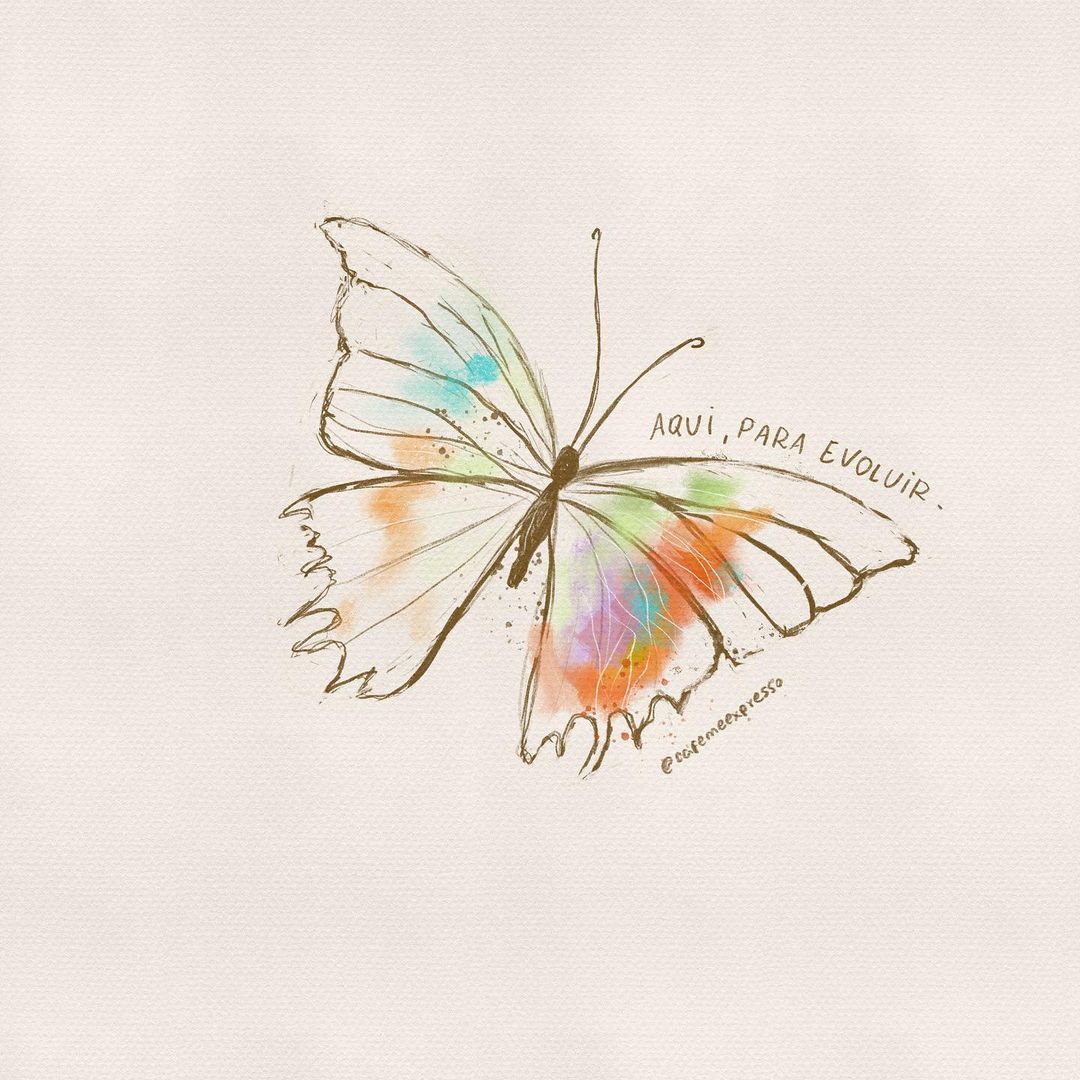 AQUI, PARA EVOLUIR.
@cafemeexpresso